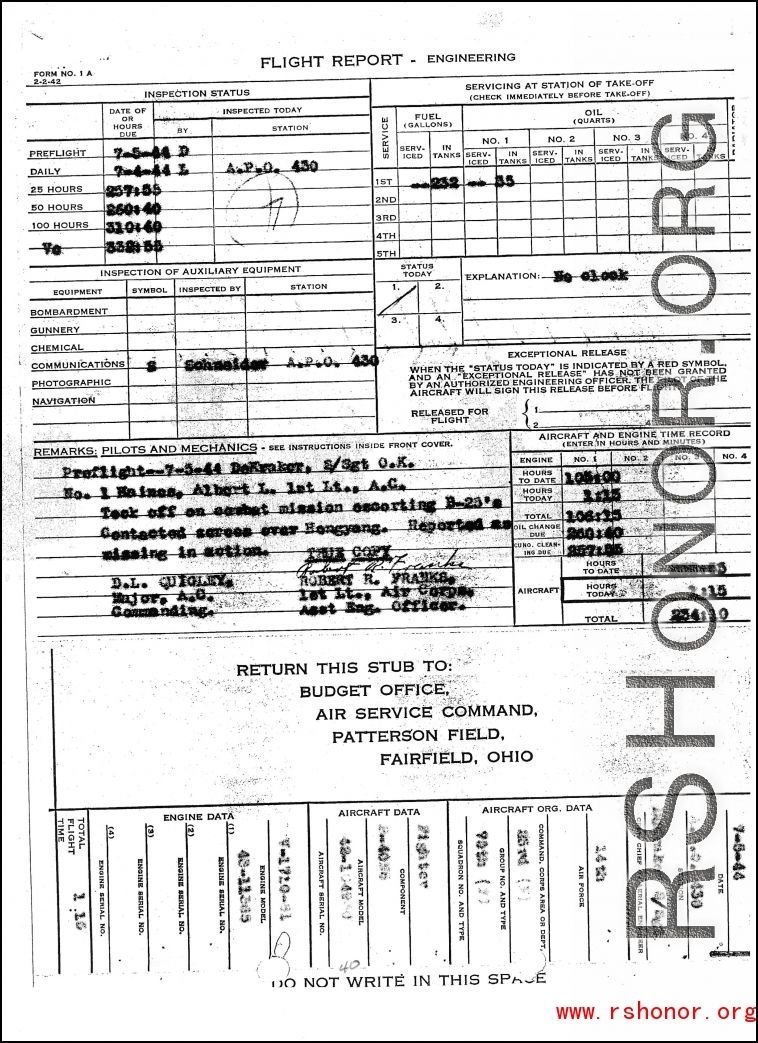 FLIGHT REPORT - ENGINEERING
FORM NO. 1 A
2-2-42
INSPECTION STATUS
DATE OF OR HOURS DUE
INSPECTED TODAY
BY
STATION
PREFLIGHT 7-5-44 D
DAILY 7-4-44 L A.P.O. 430
25 HOURS 257:55
50 HOURS 260:40
100 HOURS 310:40
Vc 332:55
SERVICING AT STATION OF TAKE-OFF
(CHECK IMMEDIATELY BEFORE TAKE-OFF)
SERVICE
FUEL
(GALLONS)
OIL
(QUARTS)
NO. 1 NO. 2 NO. 3 NO. 4
SERV-ICED IN TANKS SERV-ICED IN TANKS SERV-ICED IN TANKS SERV-ICED IN TANKS SERV-ICED IN TANKS
1ST -- 232 -- 35
2ND
3RD
4TH
5TH
INSPECTION OF AUXILIARY EQUIPMENT
EQUIPMENT SYMBOL INSPECTED BY STATION
BOMBARDMENT
GUNNERY
CHEMICAL
COMMUNICATIONS S Schneider A.P.O. 430
PHOTOGRAPHIC
NAVIGATION
STATUS TODAY
1. 2.
3. 4.
EXPLANATION: No clock
EXCEPTIONAL RELEASE
WHEN THE "STATUS TODAY" IS INDICATED BY A RED SYMBOL,
AND AN "EXCEPTIONAL RELEASE" HAS NOT BEEN GRANTED
BY AN AUTHORIZED ENGINEERING OFFICER, THE PILOT OF THE
AIRCRAFT WILL SIGN THIS RELEASE BEFORE FLIGHT
RELEASED FOR FLIGHT
1
2
3
4
REMARKS: PILOTS AND MECHANICS - SEE INSTRUCTIONS INSIDE FRONT COVER.
Preflight--7-5-44 DeKraker, S/Sgt O.K.
No. 1 Haines, Albert L. 1st Lt., A.C.
Took off on combat mission escorting B-25's
Contacted across over Hengyang. Reported as
missing in action. TRUE COPY
Robert R. Franks
D.L. QUIGLEY, ROBERT R. FRANKS,
Major, A.C. 1st Lt., Air Corps,
Commanding. Asst Eng. Officer.
AIRCRAFT AND ENGINE TIME RECORD
(ENTER IN HOURS AND MINUTES)
ENGINE NO. 1 NO. 2 NO. 3 NO. 4
HOURS TO DATE 105:00
HOURS TODAY 1:15
TOTAL 106:15
OIL CHANGE DUE 260:40
CUNO. CLEANING DUE
AIRCRAFT
HOURS TO DATE
HOURS TODAY 1:15
TOTAL 234:10
RETURN THIS STUB TO:
BUDGET OFFICE,
AIR SERVICE COMMAND,
PATTERSON FIELD,
FAIRFIELD, OHIO
TOTAL FLIGHT TIME 1:15
ENGINE DATA
(4) ENGINE SERIAL NO.
(3) ENGINE SERIAL NO.
(2) ENGINE SERIAL NO.
(1) ENGINE SERIAL NO.
ENGINE MODEL
AIRCRAFT DATA
AIRCRAFT SERIAL NO.
AIRCRAFT MODEL
COMPONENT Fighter
AIRCRAFT ORG. DATA
SQUADRON NO. AND TYPE
GROUP NO. AND TYPE
COMMAND, CORPS AREA OR DEPT.
AIR FORCE 14th
DATE 7-5-44
40
DO NOT WRITE IN THIS SPACE
RSHONOR.ORG
www.rshonor.org